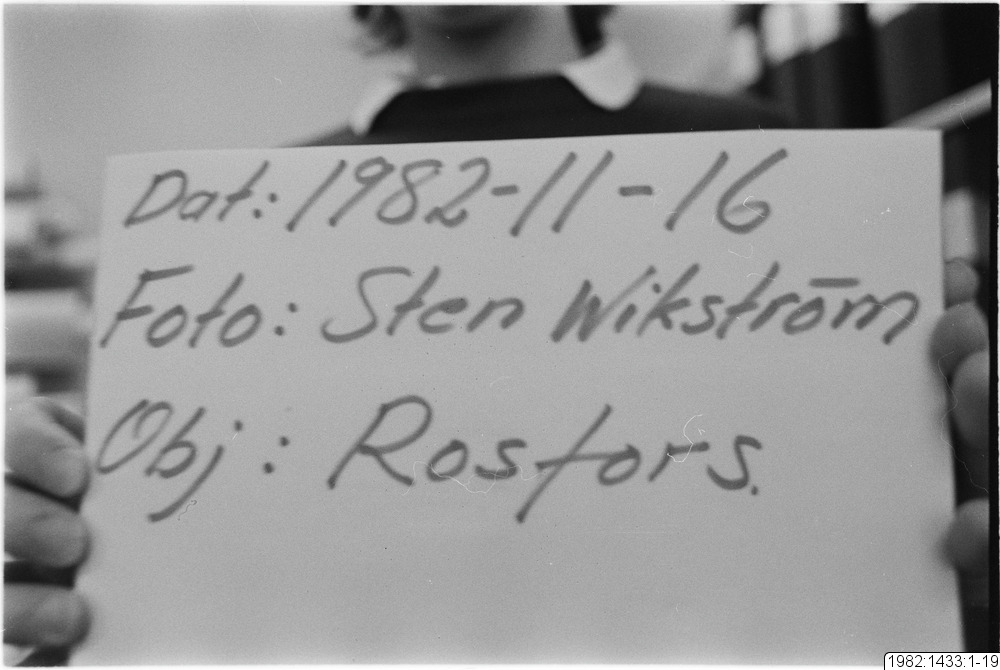 Dat: 1982-11-16
Foto: Sten Wikström
Obj: Rosfors.
1982:1433:1-19